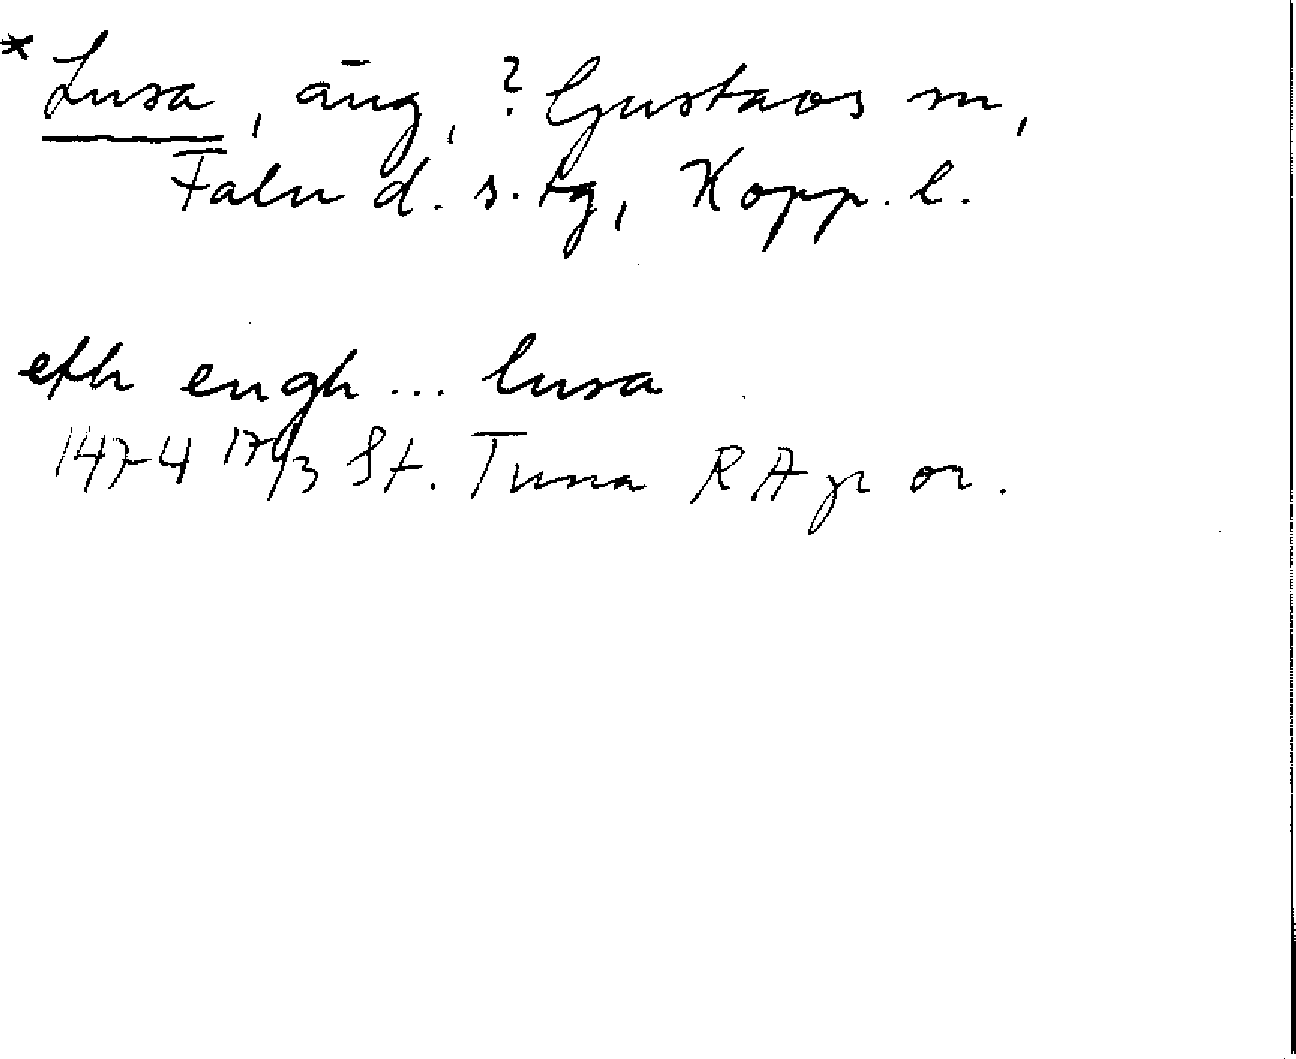 * Lusa, äng, ? Gustavs sn,
Falu d. s. tg, Kopp. l.
eth engh ... lusa
1474 17/3 St. Tuna RAp or.